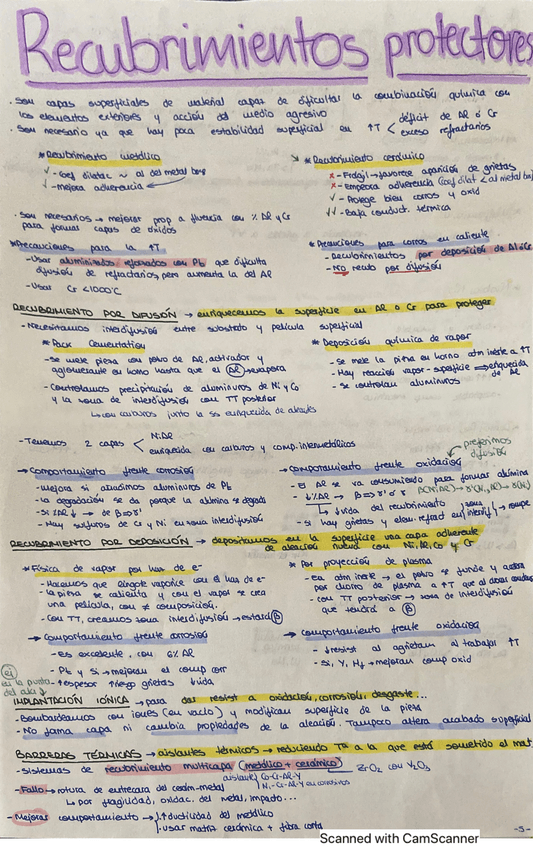 Recubrimientos protectores
· Son capas superficiales de material capaz de dificultar la combinación química con
los elementos exteriores y acción del medio agresivo
· Son necesario ya que hay poca estabilidad superficial en ↑T < déficit de Al ó Cr
exceso refractarios
* Recubrimiento metálico
✓ - Coef dilatac ~ al del metal base
✓ - mejora adherencia
* Recubrimiento cerámico
x - Fragil → favorece aparición de grietas
x - Empeora adherencia (coef dilat < al metal base
✓ - Protege bien corros y oxid
✓✓ - Baja conduct. térmica
· Son necesarios → mejorar prop a fluencia con % Al y Cr
para formar capas de óxidos
* Precauciones para la ↑T
- Usar aluminizados reforzados con Pt que dificulta
difusión de refractarios, pero aumenta la del Al
- Usar Cr <1000°C
* Precauciones para corros en caliente
- Recubrimientos por deposición de Al ó Cr
- No recub por difusión
RECUBRIMIENTO POR DIFUSIÓN → enriquecemos la superficie en Al o Cr para proteger
- Necesitamos interdifusión entre substrato y película superficial
* Pack Cementation
- Se mete pieza con polvo de Al, activador y
aglomerante en horno hasta que el Al → vapora
- Controlamos precipitación de aluminuros de Ni y Co
y la zona de interdifusión con TT posterior
↳ con carburos junto la ss enriquecida de aleación
* Deposición química de vapor
- Se mete la pieza en horno atm inerte a ↑T
- Hay reacción vapor - superficie → enriquecida
de Al
- Se controlan aluminuros
- Tenemos 2 capas < NiAl
enriquecida con carburos y comp. intermetálicos
→ Comportamiento frente corrosión
- Mejora si añadimos aluminuros de Pt
- La degradación se da porque la alúmina se degrada
- Si %Al ↓ → de β ⇒ γ'
- Hay sulfuros de Cr y Ni en zona interdifusión
→ Comportamiento frente oxidación
preferimos
difusión
- El Al se va consumiendo para formar alúmina
- ↓%Al → β ⇒ γ' o γ β(NiAl) → γ'(Ni3Al) → γ(Ni)
↳ ↓vida del recubrimiento
- Si hay grietas y elem. refract en interdif → rompe
RECUBRIMIENTO POR DEPOSICIÓN → depositamos en la superficie una capa adherente
de aleación nueva con Ni, Al, Co y Cr
* Física de vapor por haz de e-
- Hacemos que lingote vaporice con el haz de e-
- La pieza se calienta y con el vapor se crea
una película, con ≠ composición.
- Con TT, creamos zona interdifusión → estará β
* Por proyección de plasma
- En atm inerte → el polvo se funde y acelera
por chorro de plasma a ↑T que al chocar condensa
- Con TT posterior → zona de interdifusión
que tendrá a β
→ Comportamiento frente corrosión
- Es excelente, con 6% Al
- Pt y Si → mejoran el comp corr
- ↑espesor ↑riesgo grietas ↓vida
→ comportamiento frente oxidación
- ↑resist al agrietam al trabajar ↑T
- Si, Y, Hf → mejoran comp oxid
ej
en la punta
del ala
IMPLANTACIÓN IÓNICA → para dar resist a oxidación, corrosión, desgaste...
- Bombardeamos con iones (en vacío) y modifican superficie de la pieza
- No forma capa ni cambia propiedades de la aleación. Tampoco altera acabado superficial
BARRERAS TÉRMICAS → aislantes térmicos → reduciendo Tª a la que está sometido el mat
- Sistemas de recubrimiento multicapa (metálico + cerámico)
ZrO2 con Y2O3
aislante Co-Cr-Al-Y
Ni-Cr-Al-Y en corrosivos
- Fallo → rotura de entrecara del cerám-metal
↳ por fragilidad, oxidac. del metal, impacto...
- Mejorar comportamiento → 1. ↑ductilidad del metálico
2. usar matriz cerámica + fibra corta
-5-
Scanned with CamScanner